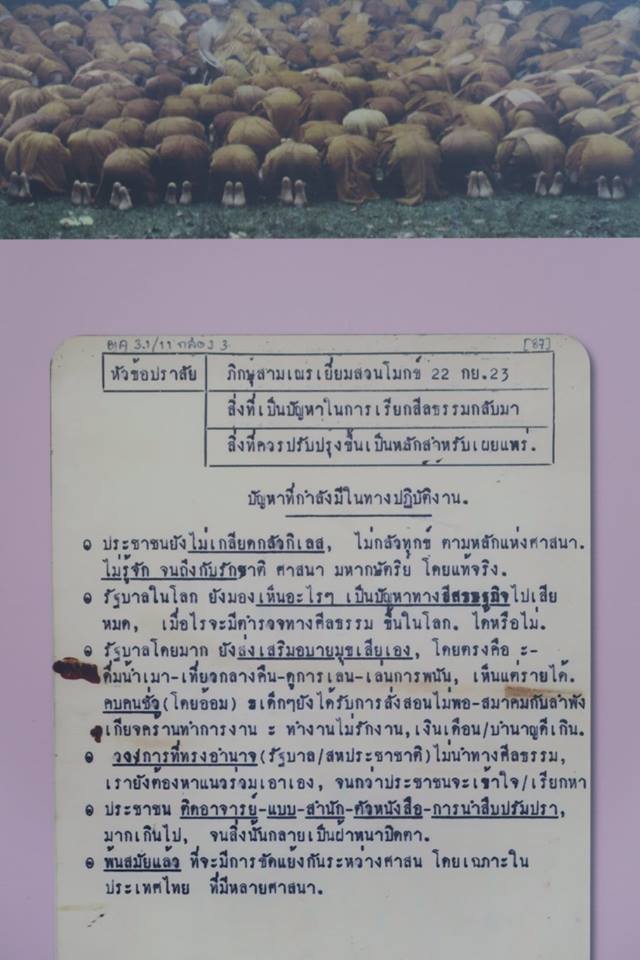 อต 3.1/11 กล่อง 3 [87]
หัวข้อปราศัย
ภิกษุสามเณรเยี่ยมสวนโมกข์ 22 กย.23
สิ่งที่เป็นปัญหาในการเรียกสีลธรรมกลับมา
สิ่งที่ควรปรับปรุงขึ้นเป็นหลักสำหรับเผยแพร่.
ปัญหาที่กำลังมีในทางปฏิบัติงาน.
ประชาชนยังไม่เกลียดกลัวกิเลส, ไม่กลัวทุกข์ ตามหลักแห่งศาสนา.
ไม่รู้จัก จนถึงกับรักชาติ ศาสนา มหากษัตริย์ โดยแท้จริง.
รัฐบาลในโลก ยังมองเห็นอะไรๆ เป็นปัญหาทางสีสรษฐกิจไปเสีย
หมด, เมื่อไรจะมีตำรวจทางศีลธรรม ขึ้นในโลก. ได้หรือไม่.
รัฐบาลโดยมาก ยังส่งเสริมอบายมุขเสียเอง, โดยตรงคือ ะ-
ดื่มน้ำเมา-เที่ยวกลางคืน-ดูการเล่น-เล่นการพนัน, เห็นแต่รายได้.
คบคนชั่ว(โดยอ้อม) ะเด็กๆยังได้รับการสั่งสอนไม่พอ-สมาคมกันลำพัง
เกียจคร้านทำการงาน ะ ทำงานไม่รักงาน,เงินเดือน/บำนาญดีเกิน.
วงการที่ทรงอำนาจ(รัฐบาล/สหประชาชาติ)ไม่นำทางศีลธรรม,
เรายังต้องหาแนวร่วมเอาเอง, จนกว่าประชาชนจะเข้าใจ/เรียกหา
ประชาชน ติดอาจารย์-แบบ-สำนัก-ตัวหนังสือ-การนำสืบปรัมปรา,
มากเกินไป, จนสิ่งนั้นกลายเป็นฝ้าหนาปิดตา.
พ้นสมัยแล้ว ที่จะมีการขัดแย้งกันระหว่างศาสน โดยเฉภาะใน
ประเทศไทย ที่มีหลายศาสนา.